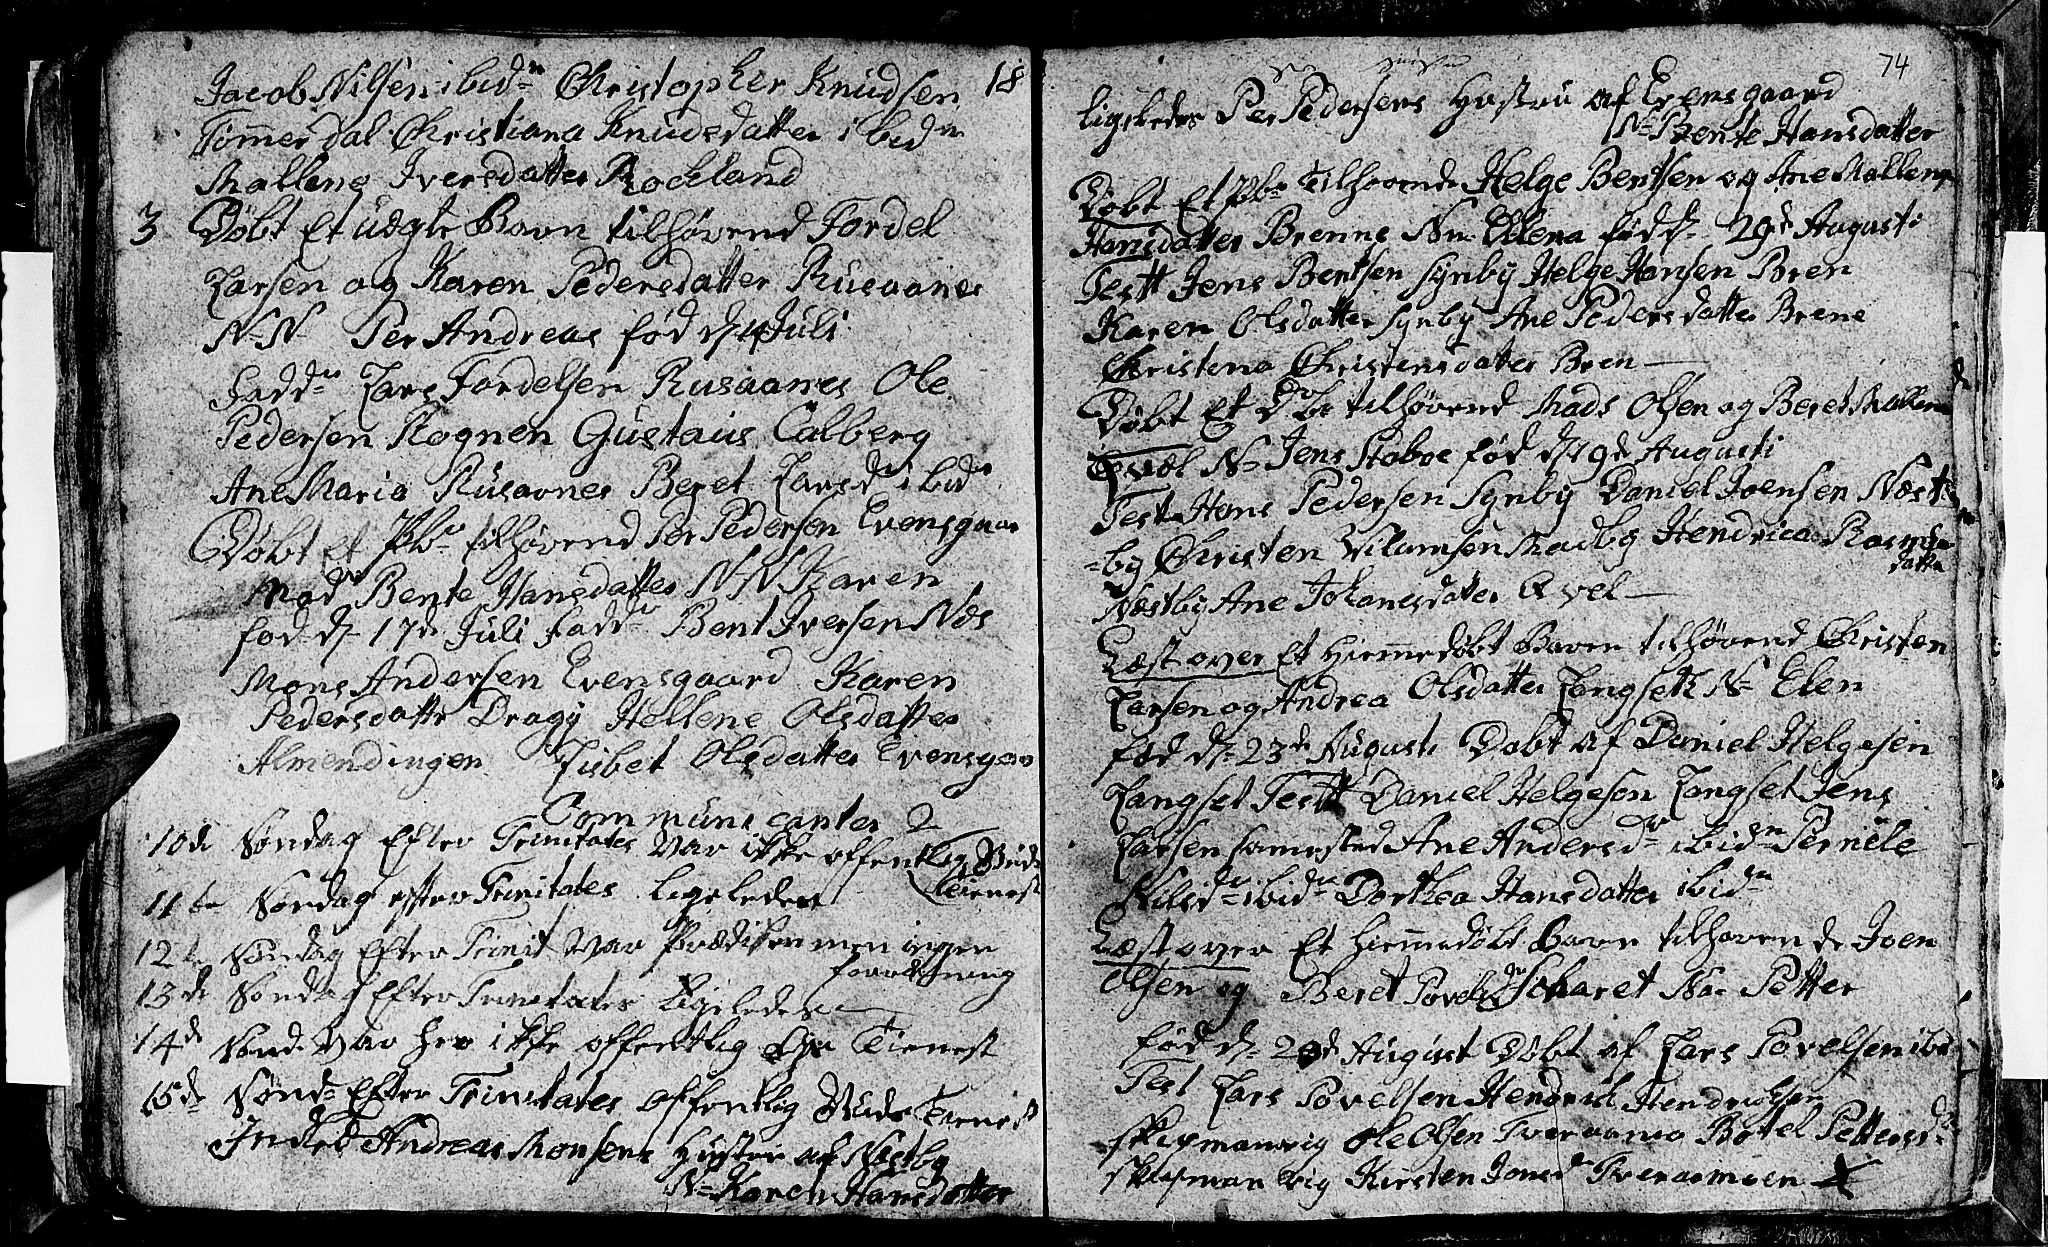 Jacob Nilsen ibidn Christopher Knudsen 18
Tømmerdal Christiana Knudsdatter ibidn
Mallene Iversdatter Rockland
3 Døbt Et udgte Barn tilhørend Fordel
Larsen og Karen Pedersdatter Rusaanes
N-N Per Andreas fød d 4 Juli
Faddr Lars Fordelsen Rusaanes Ole
Pedersen Rognen Gustaus Calberg
Ane Maria Rusaanes Beret Larsd ibidn
Døbt et Pb tilhørend Per Pedersen Evensgaar
Mod Bente Hansdatter N-N Karen
fød d- 17de Juli Faddr Bent Iversen Næs
Mons Andersen Evensgaard Karen
Pedersdattr Dragy Hellene Olsdatter
Almendingen Lisbet Olsdatter Evensgaar
Communicanter 2
10de Søndag Efter Trinitates Var ikke offentlig Guds
Tienest
11te Søndag efter Trinitates ligeleden
12te Søndag Efter Trinit Var Prædiken men ingen
forretning
13de Søndag Efter Trinitates Ligeleden
14de Sønd- Var her ikke offentlig Gus Tienest
15de Sønd- Efter Trinitates offentlig Guds Tienest
Indled Andreas Monsens Hustru af Næstby
N- Karen Hansdatter
74
ligeledes Per Pedersens Hustru af Evensgaard
N- Bente Hansdatter
Døbt Et Pb- Tilhørende Helge Bentsen og Ane Mallena
Hansdatter Brenne Nn- Ellena fød d- 29de Augusti
Testt Jens Bentsen Synby Helge Hansen Bren
Karen Olsdatter Synby Ane Pedersdatter Brene
Christena Christensdatter Bren
Døbt Et Db tilhørend Mads Olsen og Beret Mallena
Qvæl N- Jens Staboe fød d 19de Augusti
Test Hans Pedersen Synby Daniel Joensen Næst-
-by Christen Wilumsen Nadby Hendrica Rasmus
datter
Næstby Ane Johanesdatter Qvel
Læst over Et Hiemmedøbt Barn tilhørend Christen
Larsen og Andrea Olsdatter Langseth N- Elen
fød d- 23de Augusti Døbt af Daniel Helgesen
Langset Testt Daniel Helgesen Langset Jens
Larsen samested Ane Andersdr ibidn Pernele
Nilsdr ibidn Dorthea Hansdatter ibidn
Læst over Et Hiemmedøbt Barn tilhørende Joen
Olsen og Beret Povelsdr Scharet Na- Petter
fød d- 20de August Døbt af Lars Povelsen ibd
Test Lars Povelsen Hendrich Hendrichsen
Skipmanvig Ole Olsen Tveraamo Botel Pettersdr
Skipmanvig Kirsten Jonsd Tveraamoen